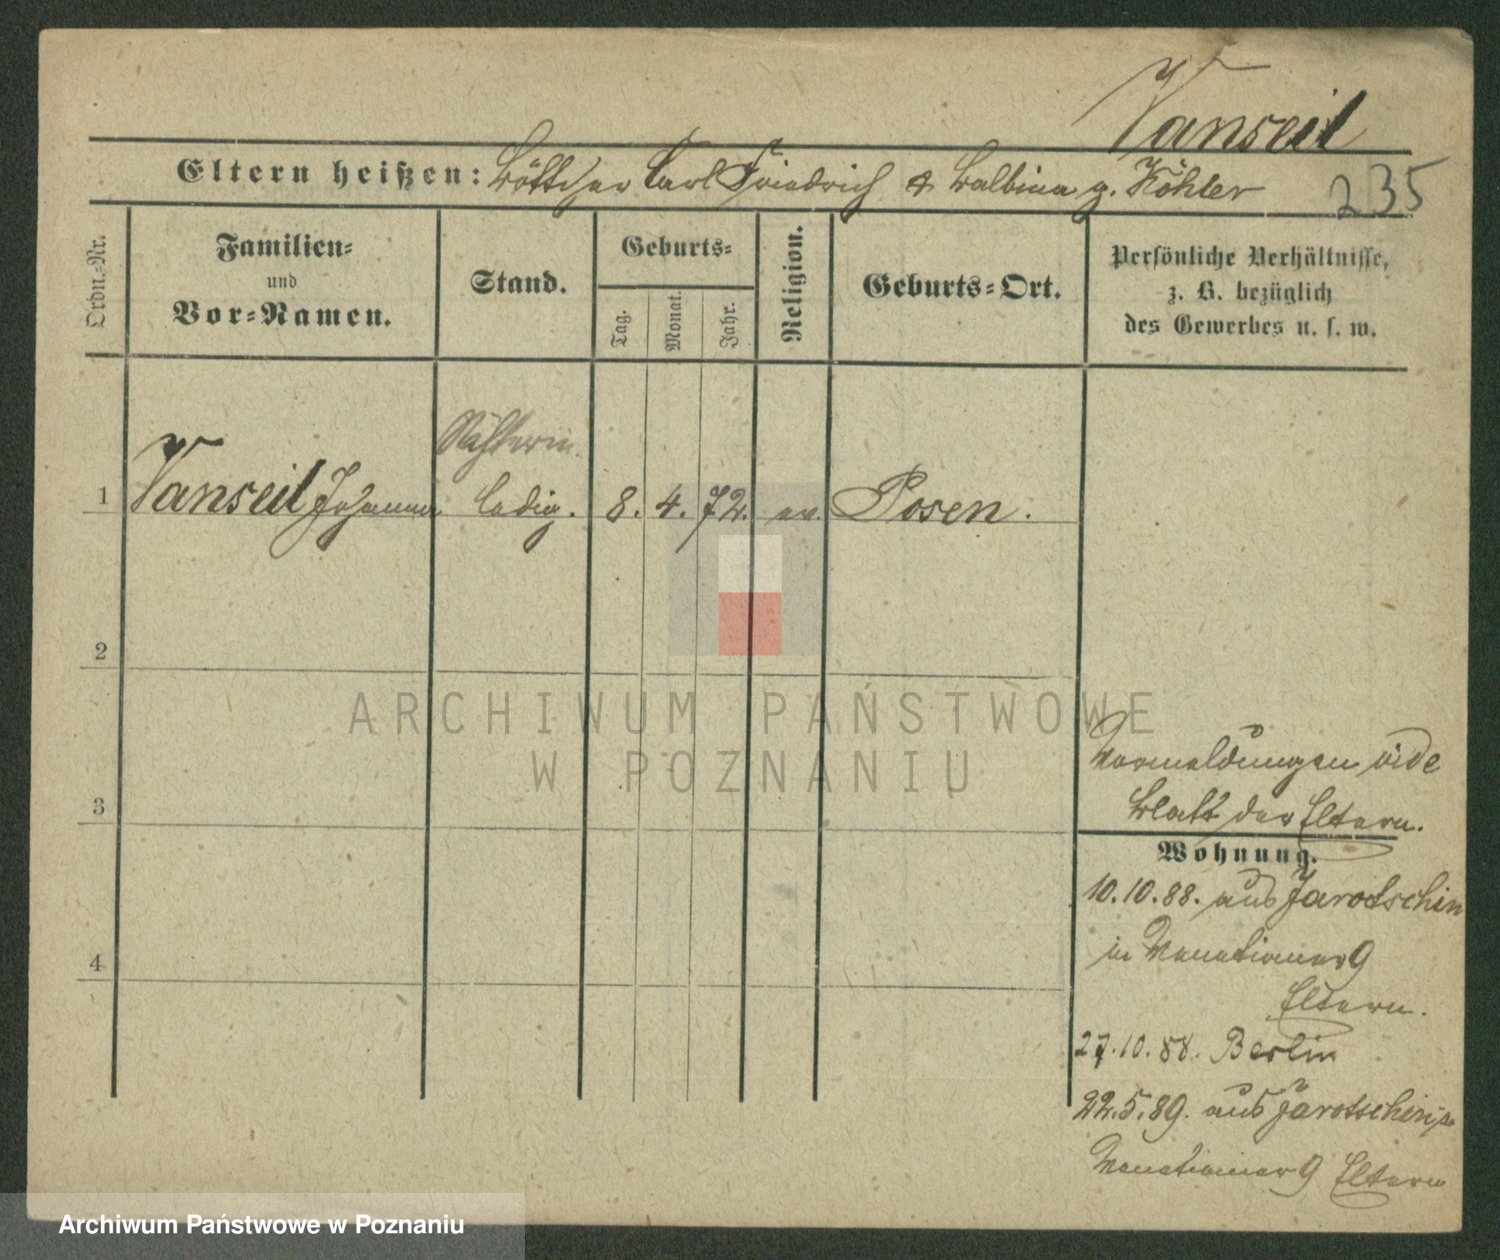 Vanseil
Eltern heißen: Böttcher Carl Friedrich & Balbina g. Köhler 235
Ordn.-Nr.
Familien-
und
Vor-Namen.
Stand.
Geburts-
Tag.
Monat.
Jahr.
Religion.
Geburts-Ort.
Persönliche Verhältnisse,
z. B. bezüglich
des Gewerbes u. s. w.
Nähterin
1 Vanseil Johanna ledig. 8. 4. 72. ev. Posen.
2
ARCHIWUM PAŃSTWOWE
W POZNANIU
Vormeldungen vide
Blatt der Eltern.
3
Wohnung.
10.10.88. aus Jarotschin
in Venetianer 9
4
Eltern.
27.10.88. Berlin
22.5.89. aus Jarotschin
Venetianer 9 Eltern
Archiwum Państwowe w Poznaniu